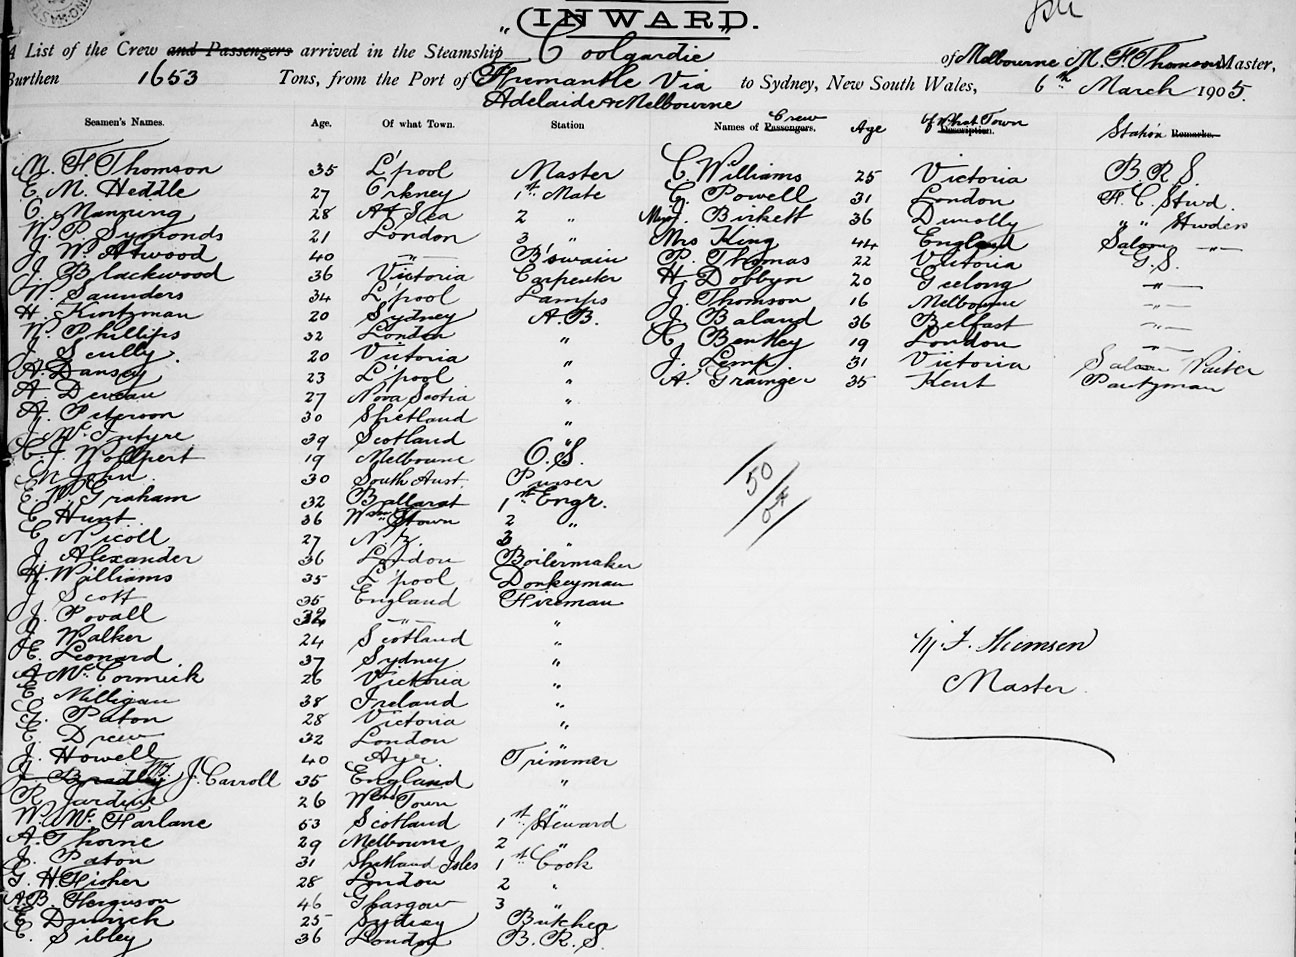 INWARD.
A List of the Crew and Passengers arrived in the Steamship "Coolgardie" of Melbourne M. F. Thomson Master,
Burthen 1653 Tons, from the Port of Fremantle Via to Sydney, New South Wales, 6th March 1905.
Adelaide & Melbourne
Seamen's Names. Age. Of what Town. Station Names of Passengers. Crew Age Description. Of What Town Station Remarks.
M. F. Thomson 35 L'pool Master C. Williams 25 Victoria B. R. S.
E. M. Heddle 27 Orkney 1st Mate G. Powell 31 London F. C. Stwd.
C. Manning 28 At Sea 2 " Miss J. Birkett 36 Dunolly " " Stwdess
W. P. Symonds 21 London 3 " Mrs King 44 England Saloon "
J. W. Atwood 40 " B'swain P. Thomas 22 Victoria G. S.
J. Blackwood 36 Victoria Carpenter H. Dobbyn 20 Geelong "
W. Saunders 34 L'pool Lamps J. Thomson 16 Melbourne "
H. Kuntzman 20 Sydney A. B. J. Baland 36 Belfast "
W. Phillips 32 London " Bentley 19 London "
J. Scully 20 Victoria " J. Lemp 31 Victoria Saloon Waiter
A. Dansey 23 L'pool " A. Grainger 35 Kent Pantryman
A. Deveau 27 Nova Scotia "
A. Peterson 30 Shetland "
J. McIntyre 39 Scotland "
C. J. Wollpert 19 Melbourne O. S.
John 30 South Aust. Purser
E. W. Graham 32 Ballarat 1st Engr.
C. Hunt 36 Wm Stown 2 "
C. Nicoll 27 N. Z. 3 "
J. Alexander 36 London Boilermaker
H. Williams 35 L'pool Donkeyman
J. Scott 35 England Fireman
J. Povall 32 " "
J. Walker 24 Scotland "
E. Leonard 37 Sydney "
A. McCormick 26 Victoria "
E. Milligan 38 Ireland "
G. Paton 28 Victoria "
E. Drew 32 London "
J. Howell 40 Ayr. Trimmer
J. Bradley J. Carroll 35 England "
R. Jardine 26 Wms Town "
W. McFarlane 53 Scotland 1st Steward
A. Thorne 29 Melbourne 2 "
J. Paton 31 Shetland Isles 1st Cook
G. H. Fisher 28 London 2 "
A. B. Ferguson 46 Glasgow 3 "
E. 25 Sydney Butcher
C. Sibley 36 London B. R. S.
50
M. F. Thomson
Master